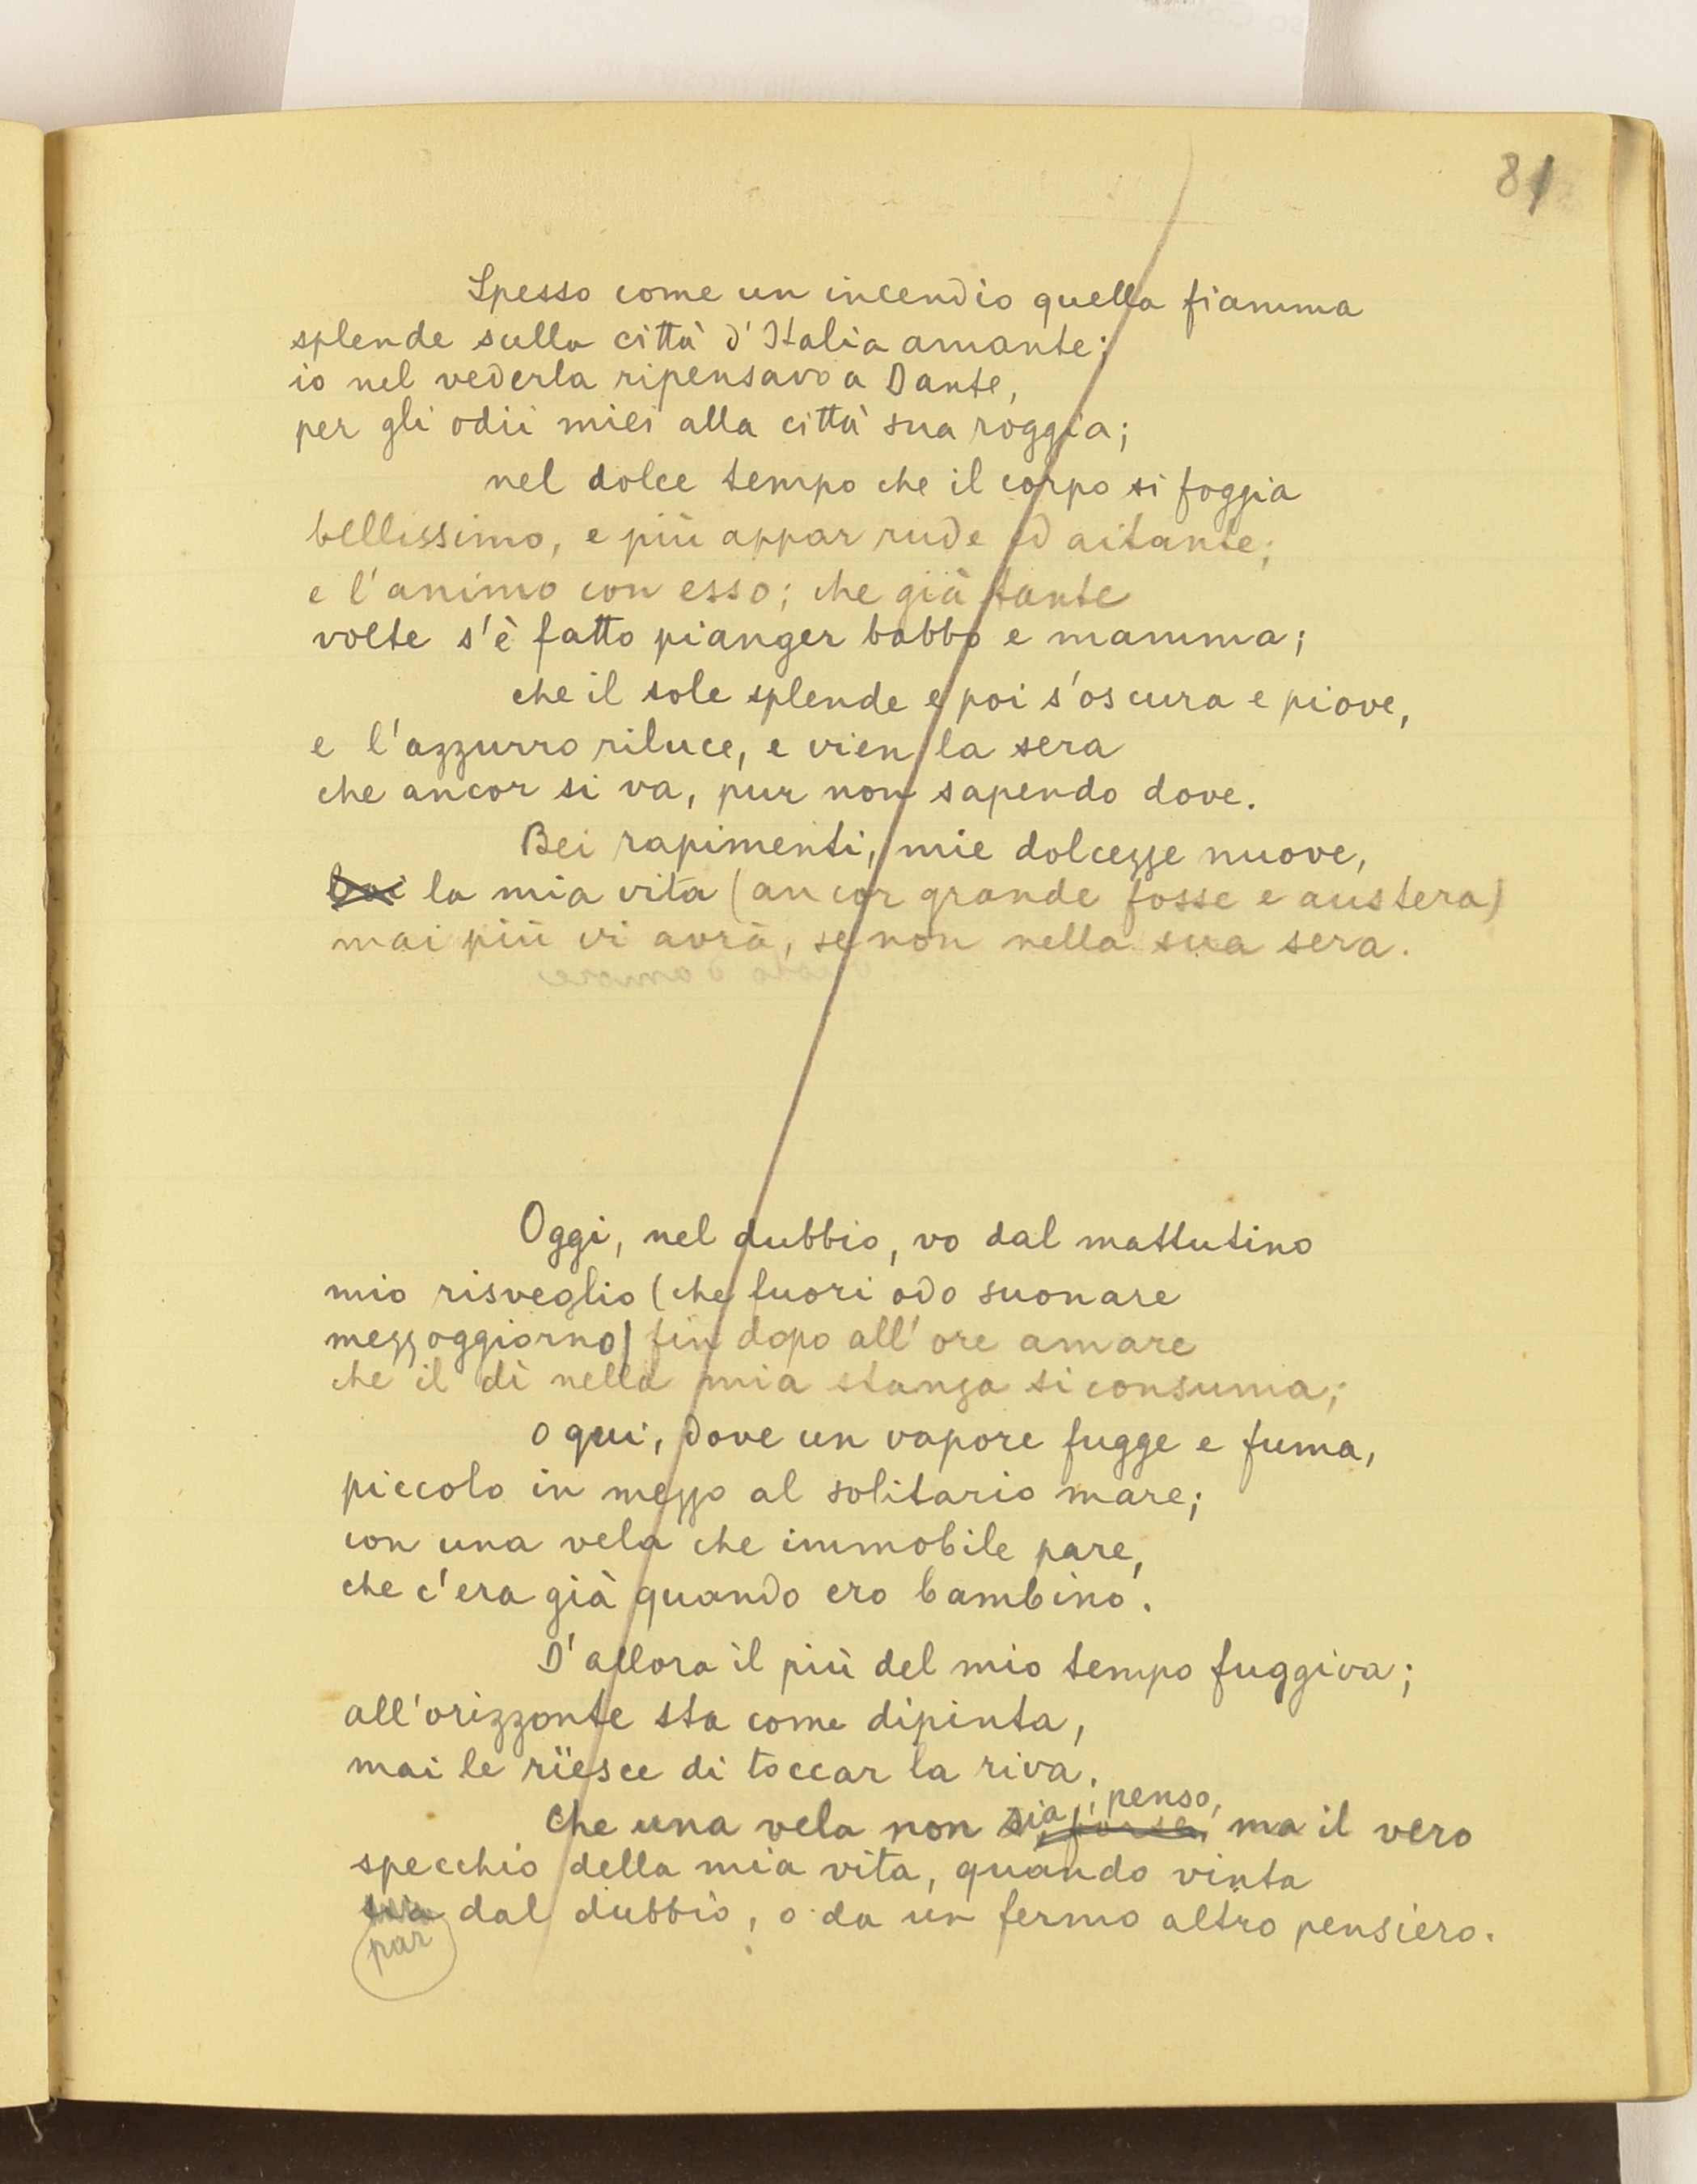 81
Spesso come un incendio quella fiamma
splende sulla città d'Italia amante;
io nel vederla ripensavo a Dante,
per gli odii miei alla città sua roggia;
nel dolce tempo che il corpo si foggia
bellissimo, e più appar rude ed aitante;
e l'animo con esso; che già tante
volte s'è fatto pianger babbo e mamma;
che il sole splende e poi s'oscura e piove,
e l'azzurro riluce, e vien la sera
che ancor si va, pur non sapendo dove.
Bei rapimenti, mie dolcezze nuove,
la mia vita (ancor grande fosse e austera)
mai più vi avrà, se non nella sua sera.
Oggi, nel dubbio, vo dal mattutino
mio risveglio (che fuori odo suonare
mezzoggiorno) fin dopo all'ore amare
che il dì nella mia stanza si consuma;
o qui, dove un vapore fugge e fuma,
piccolo in mezzo al solitario mare;
con una vela che immobile pare,
che c'era già quando ero bambino.
D'allora il più del mio tempo fuggiva;
all'orizzonte sta come dipinta,
mai le rïesce di toccar la riva.
penso,
Che una vela non sia, forse, ma il vero
specchio della mia vita, quando vinta
sia dal dubbio, o da un fermo altro pensiero.
par